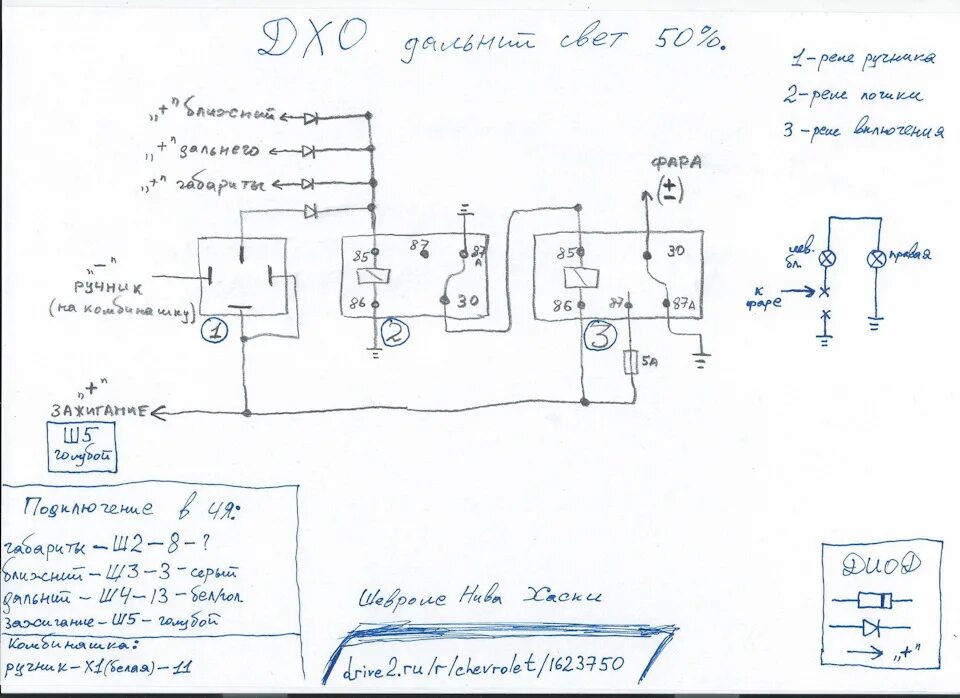 ДХО дальний свет 50%.
1-реле ручника
2-реле логики
3-реле включения
„+" ближний
„+" дальнего
„+" габариты
ФАРА
(±)
„-"
РУЧНИК
(на комбинашку)
85
87
87A
86
30
85
30
86
87
87A
1
2
3
5А
лев.
бл.
правая
к
фаре
„+"
ЗАЖИГАНИЕ
Ш5
голубой
Подключение в ЧЯ:
габариты – Ш2 – 8 – ?
ближний – Ш3 – 3 – серый
дальний – Ш4 – 13 – бел/гол.
зажигание – Ш5 – голубой
Комбинашка:
ручник – Х1(белая) – 11
Шевроле Нива Хаски
drive2.ru/r/chevrolet/1623750
ДИОД
„+"